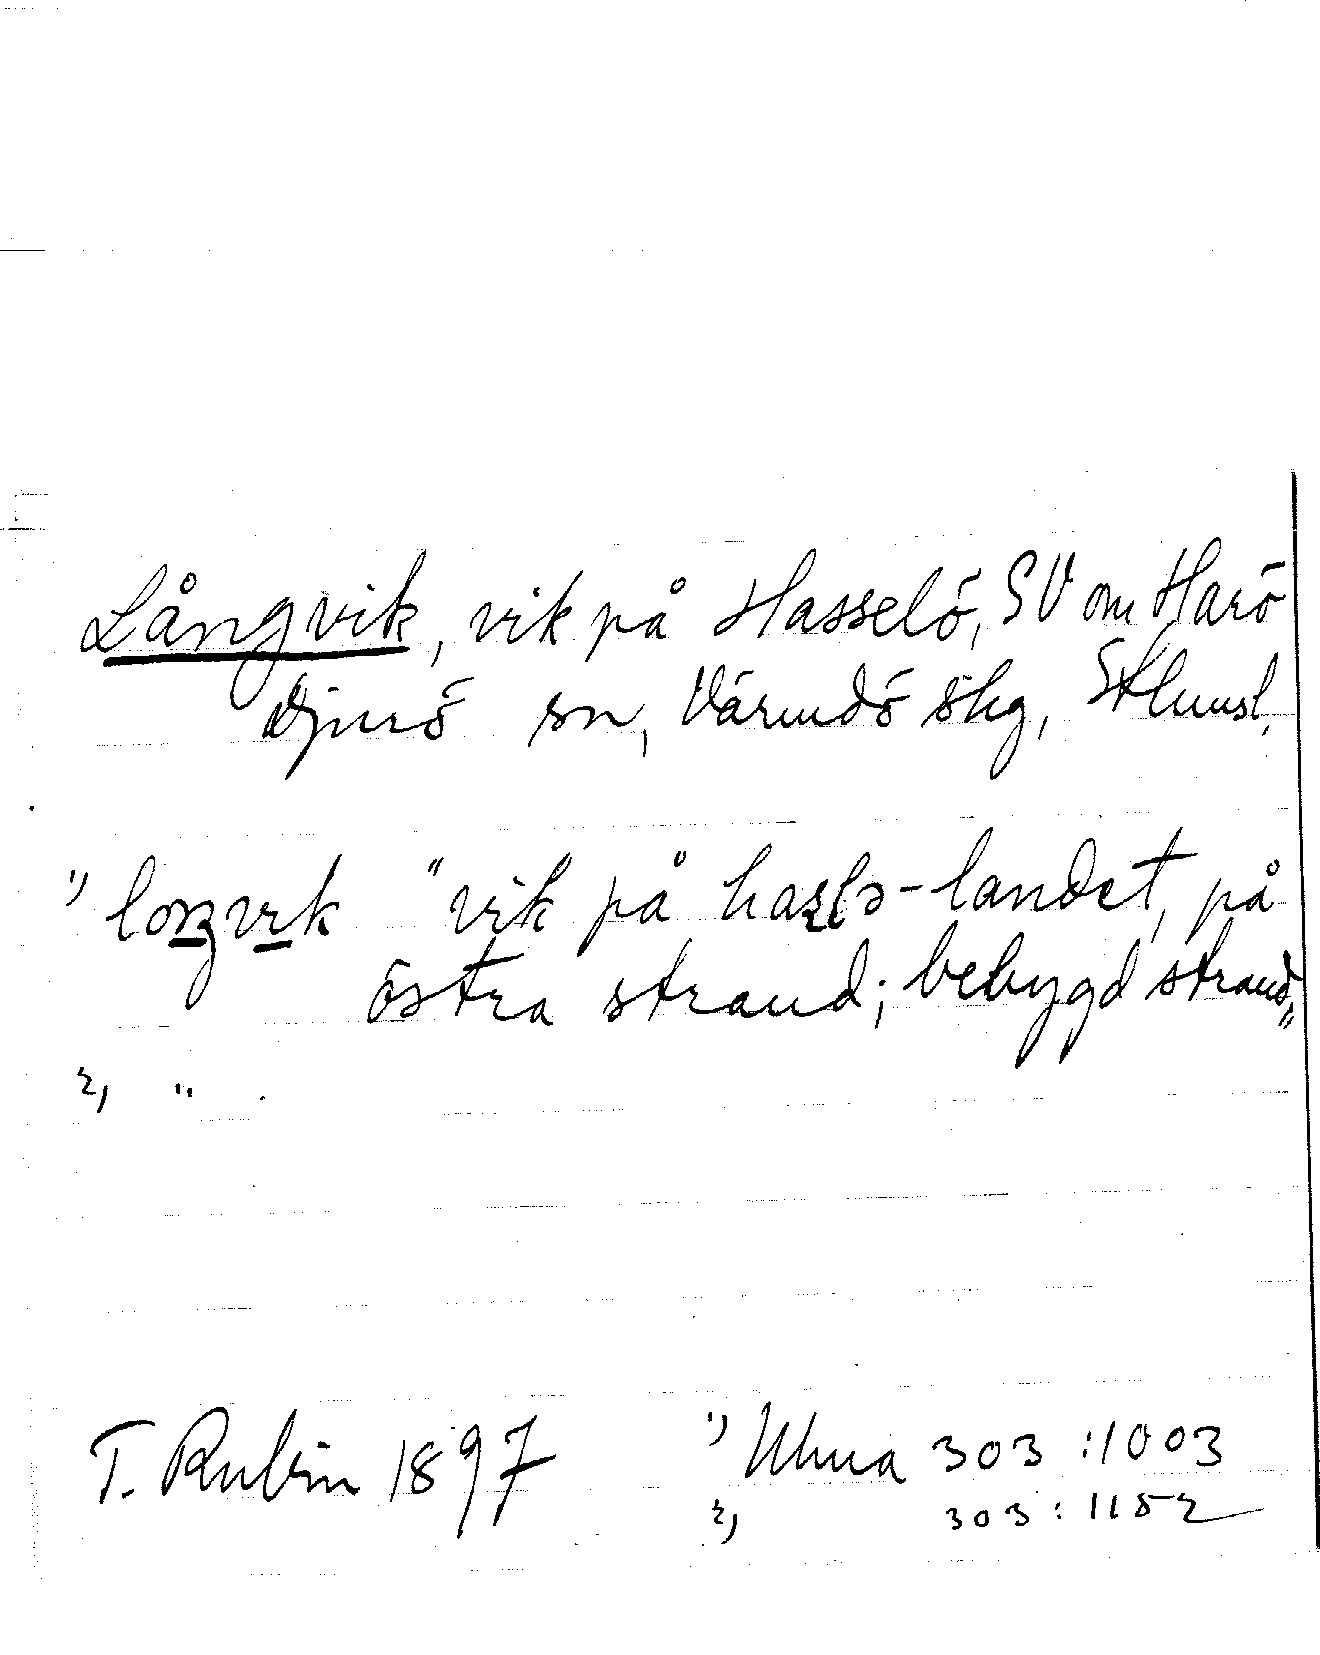 Långvik, vik på Hasselö, SV om Harö
Djurö sn, Värmdö skg, Sthmsl.
1) loŋvik "vik på haslə-landet, på
östra strand; bebygd strand"
2) "
T. Rubin 1897 1) Uhua 303:1003
2) 303:1152